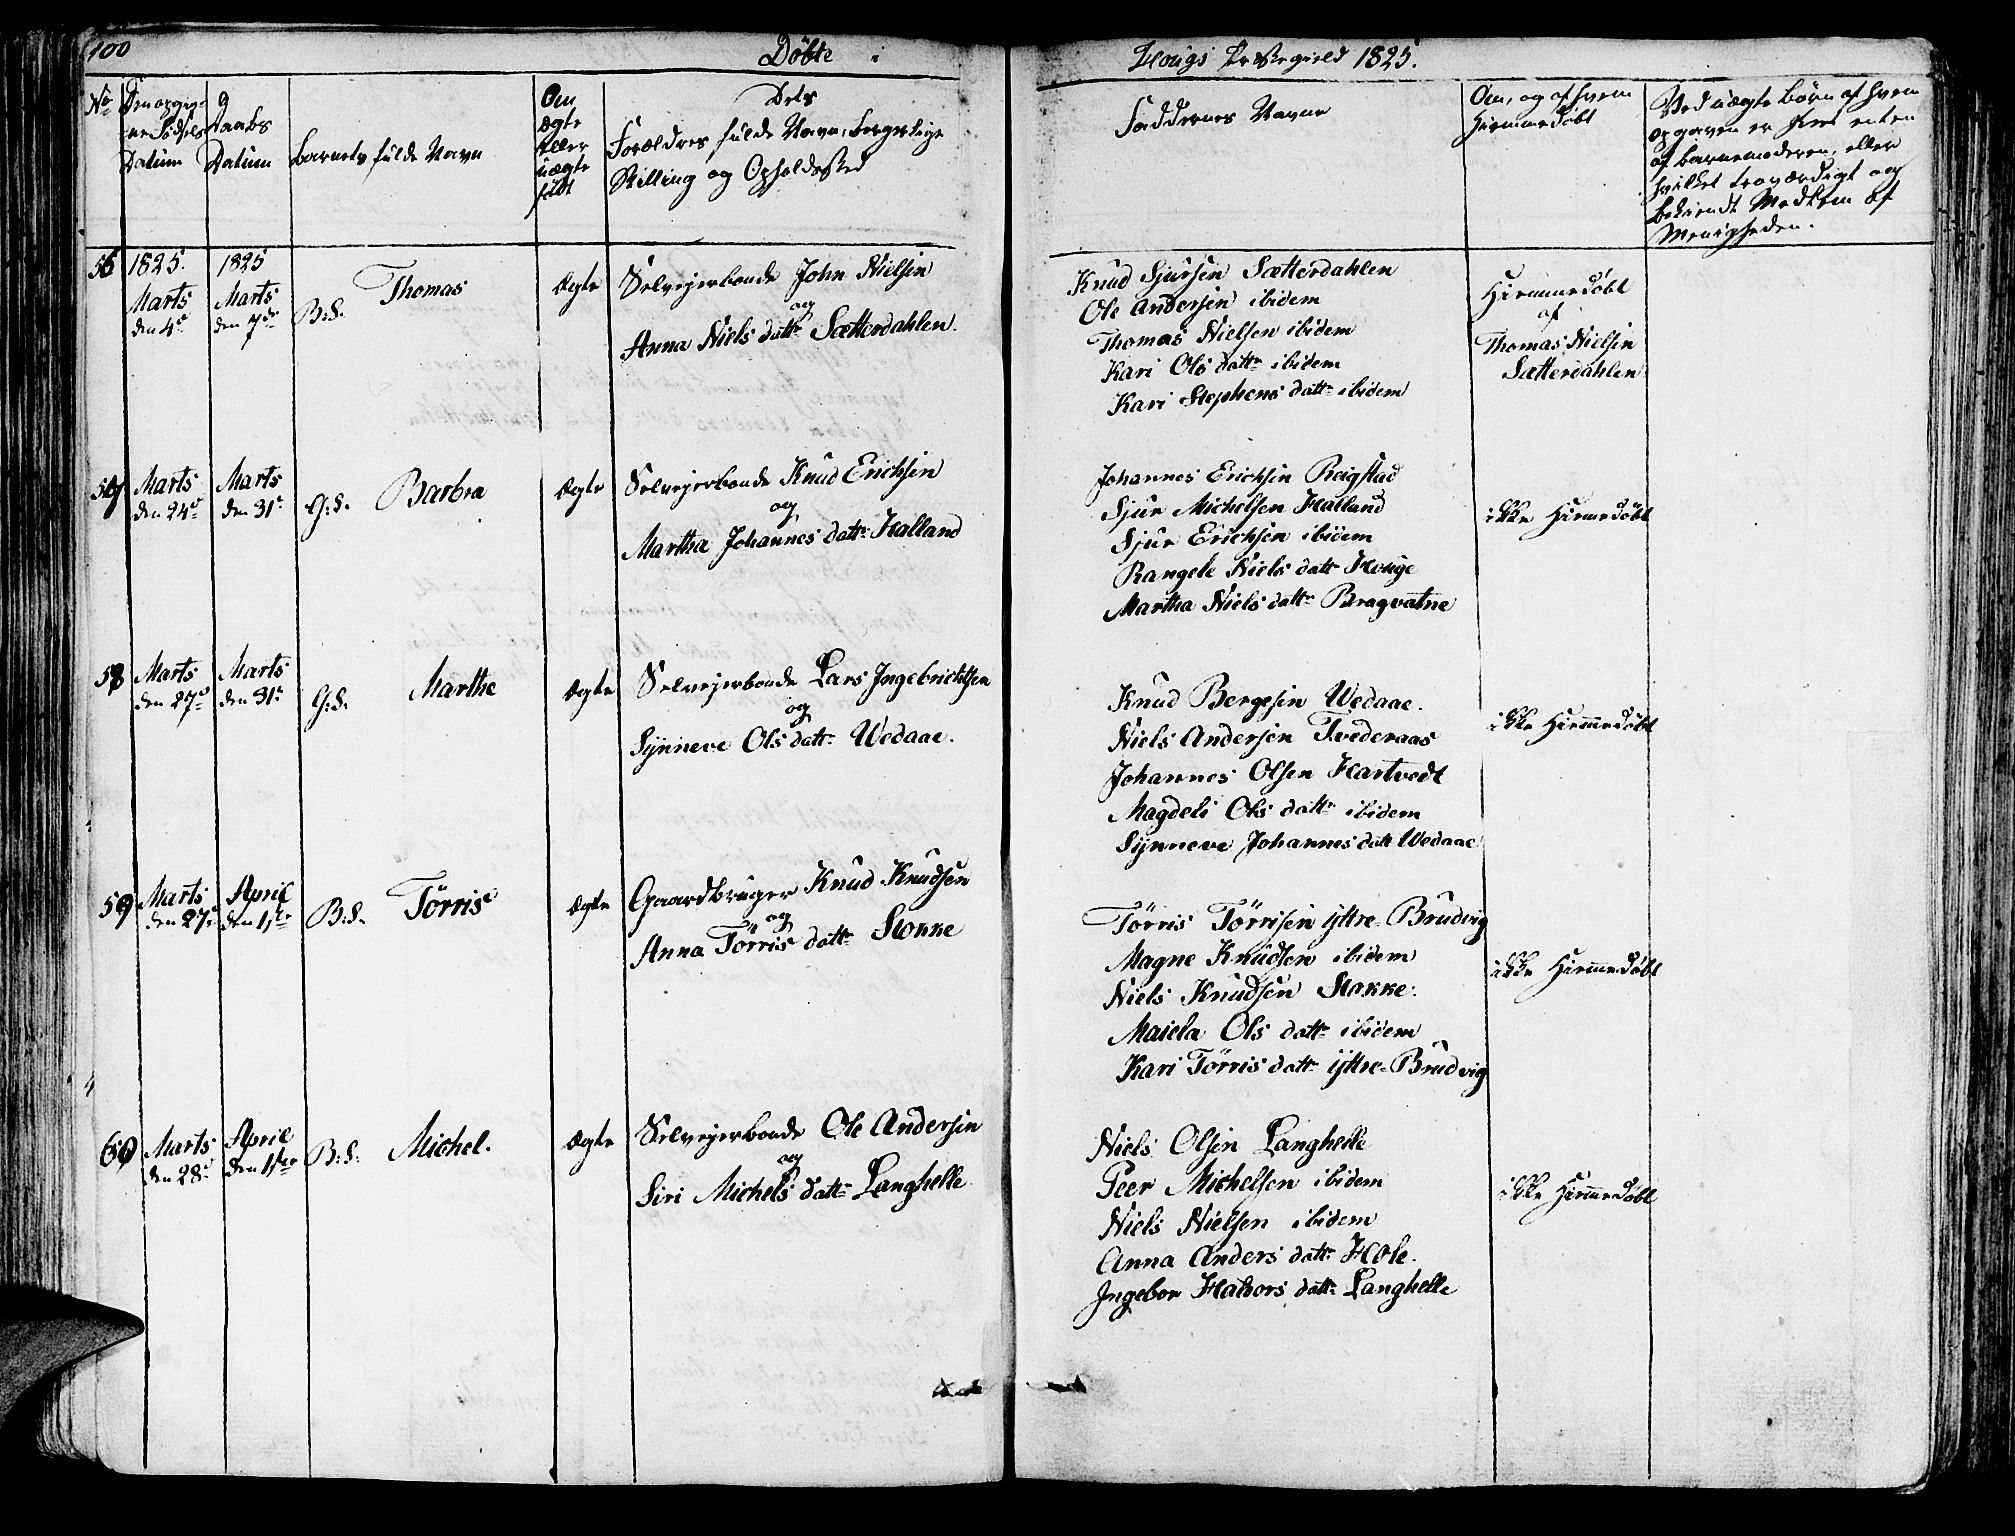 100
Døbte i
Hougs Præstegield 1825.
No
Den opgig-
ne Fødsels
Datum
Daabs
Datum
barnets fulde Navn
Om
ægte
eller
uægte
født
Dets
Forældres fulde Navn, borgerlige
Stilling og Opholdssted
Faddernes Navne
Om, og af hvem
hiemmedøbt
Ved uægte børn af hvem
opgaven er skeet enten
af barnemoderen, eller
hvilket troværdigt og
bekiendt Medlem af
Menigheden.
56
1825.
Marts
den 4de
1825
Marts
den 7de
B:S.
Thomas
Ægte
Selvejerbonde John Nielsen
og
Anna Niels datt: Sætterdahlen.
Knud Sjursen Sætterdahlen
Ole Andersen ibidem
Thomas Nielsen ibidem
Kari Ols datt: ibidem
Kari Stephens datt: ibidem
Hiemmedøbt
af
Thomas Nielsen
Sætterdahlen
57
Marts
den 24d
Marts
den 31t
G:S.
Barbra
Ægte
Selvejerbonde Knud Erichsen
og
Martha Johannes datt: Halland
Johannes Erichsen Reigstad
Sjur Michelsen Halland
Sjur Erichsen ibidem
Rangele Niels datt: Houge
Martha Niels datt: Bragvatne
ikke Hiemedøbt
58
Marts
den 27d
Marts
den 31t
G:S.
Marthe
Ægte
Selvejerbonde Lars Ingebrichtsen
og
Synneve Ols datt: Wedaae.
Knud Bergesen Wedaae.
Niels Andersen Tvederaas
Johannes Olsen Hartvedt
Magdeli Ols datt: ibidem
Synneve Johannes datt Wedaae
ikke Hiemmedøbt
59
Marts
den 27d
April
den 1ste
B:S.
Tørris
Ægte
Gaardbruger Knud Knudsen
og
Anna Tørris datt: Stokke
Tørris Tørrisen yttre-Brudvig
Magne Knudsen ibidem
Niels Knudsen Stokke.
Maiela Ols datt: ibidem
Kari Tørris datt: yttre-Brudvig
ikke Hiemmedøbt
60
Marts
den 28d
April
den 1ste
B:S.
Michel.
Ægte
Selvejerbonde Ole Andersen
og
Siri Michels datt: Langhelle
Niels Olsen Langhelle
Peer Michelsen ibidem
Niels Nielsen ibidem
Anna Anders datt: Hole.
Ingebor Halvors datt: Langhelle
ikke Hiemmedøbt